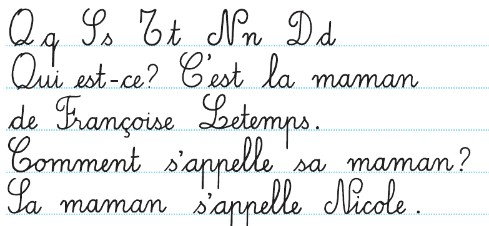 Q q S s T t N n D d
Qui est-ce? C'est la maman
de Françoise Letemps.
Comment s'appelle sa maman?
Sa maman s'appelle Nicole.